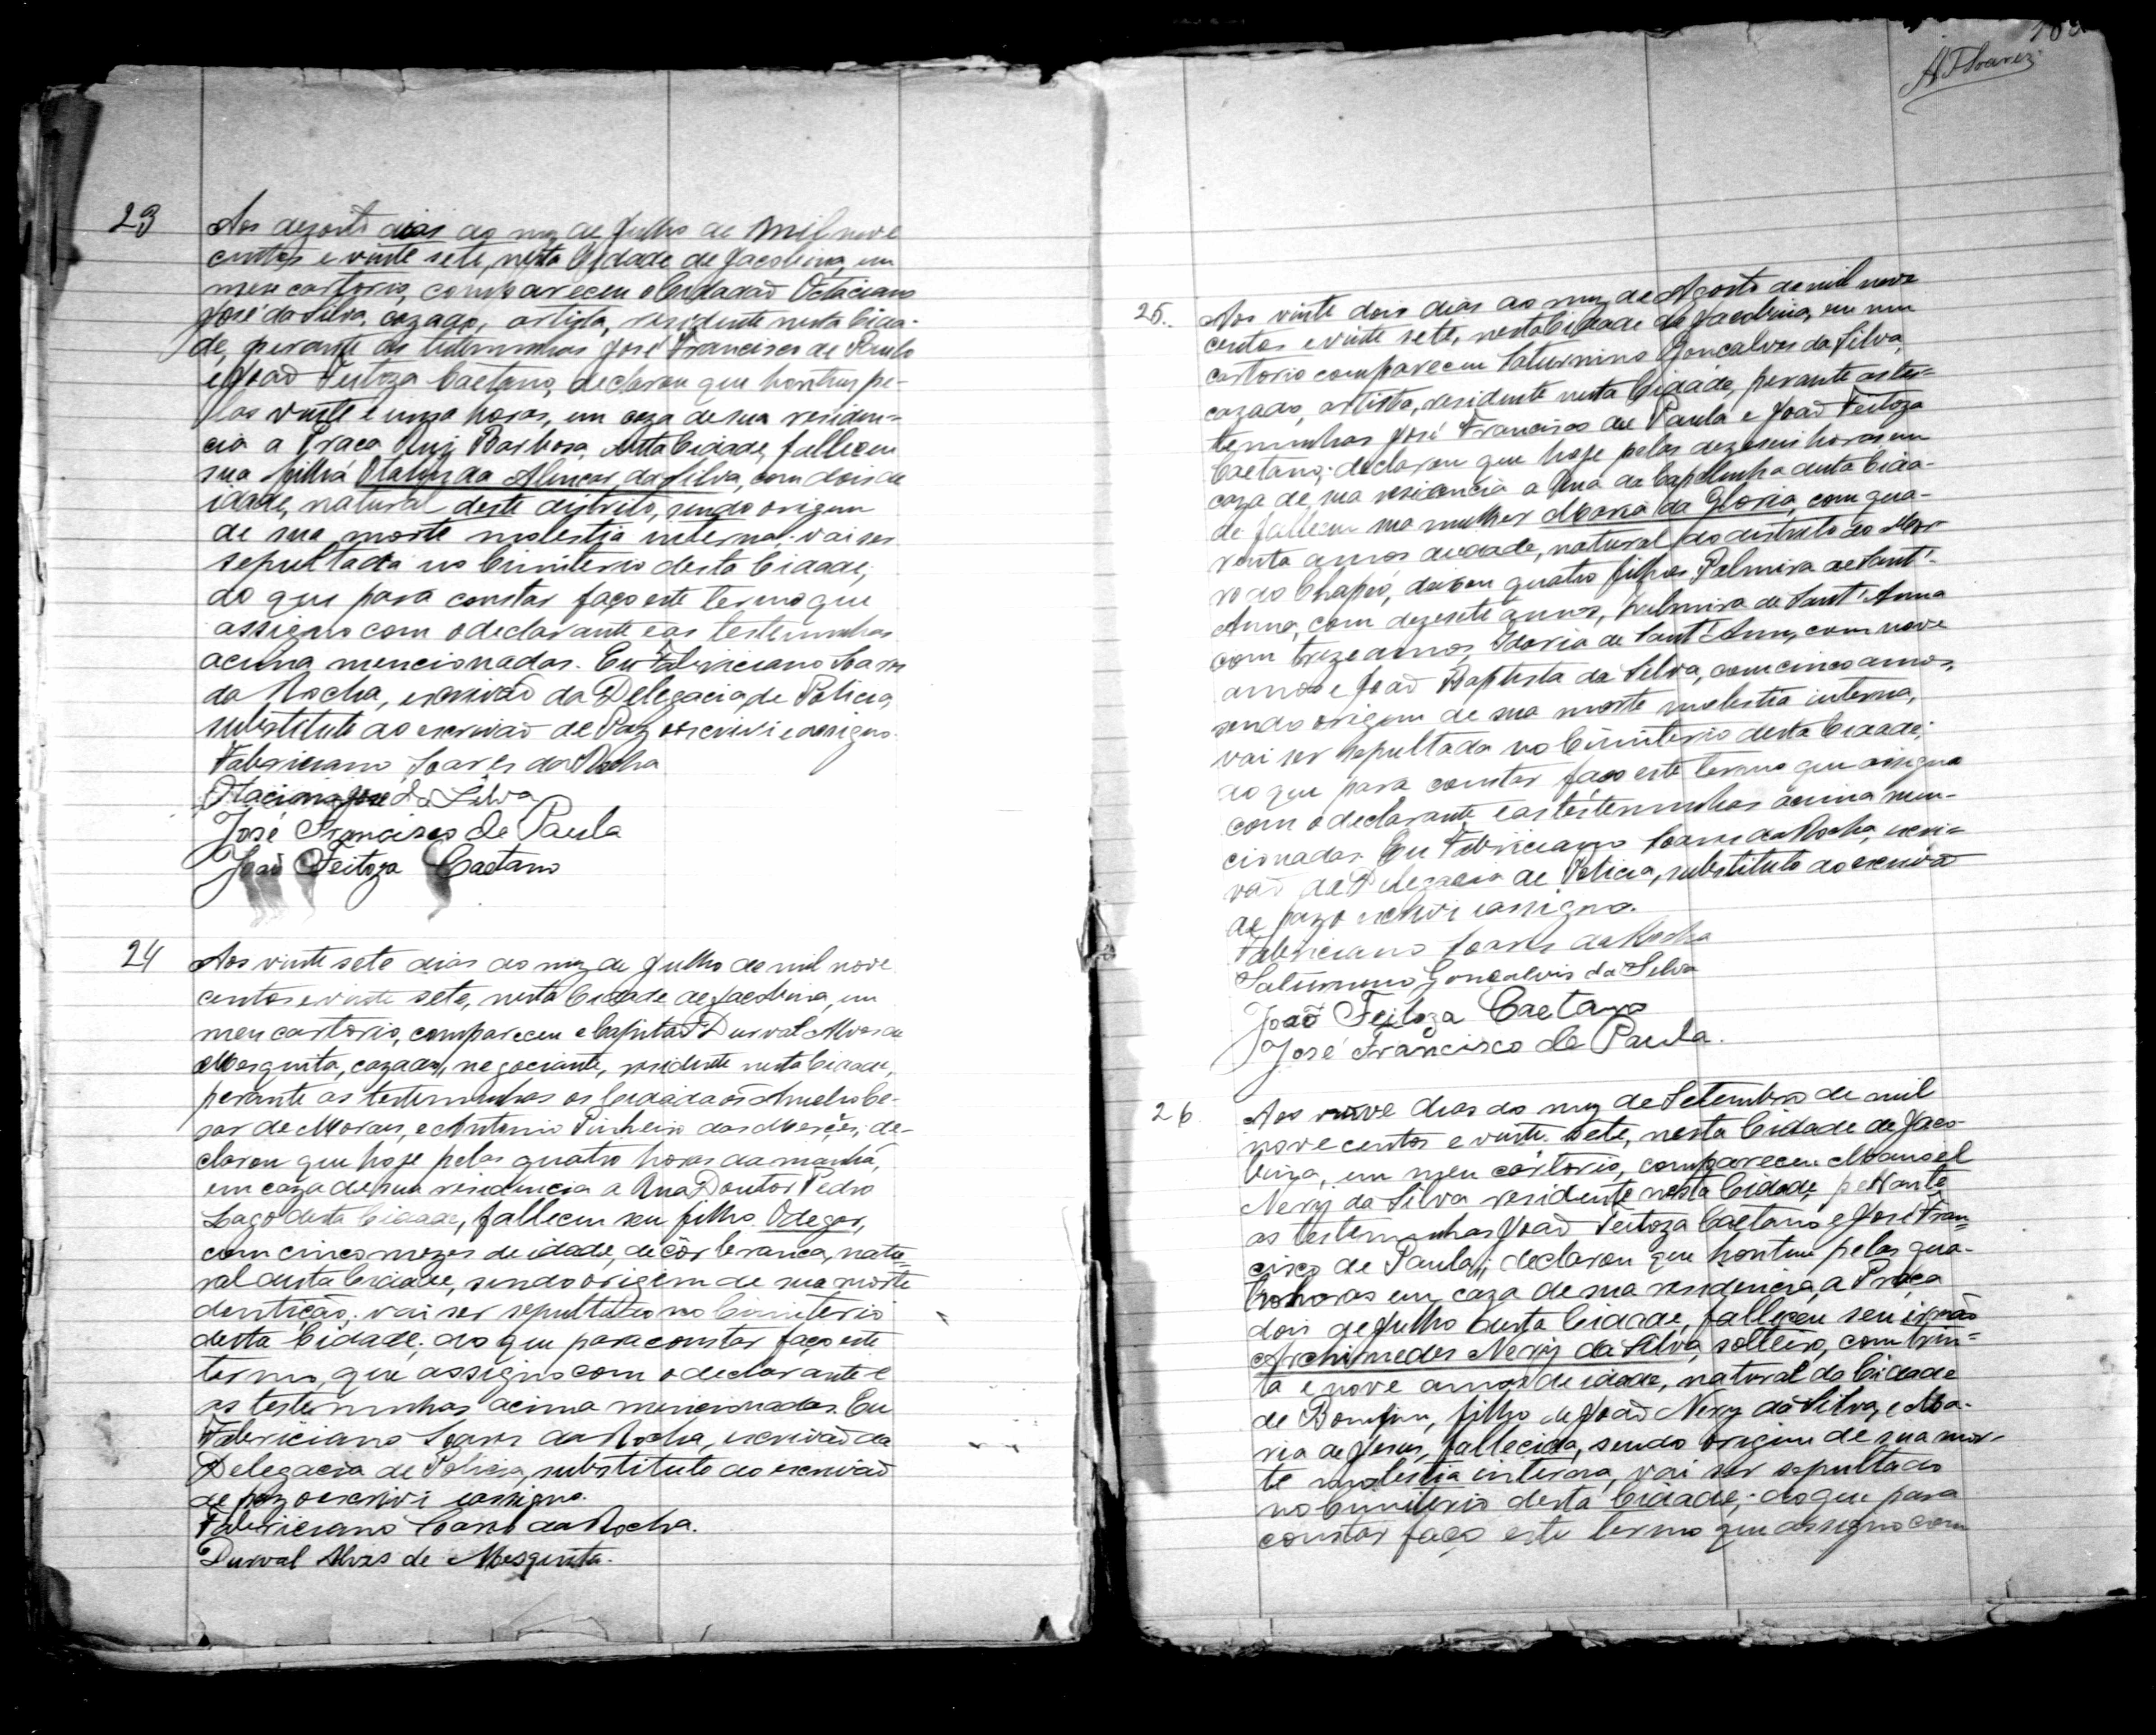 23
Aos dezoito dias do mez de Julho de mil nove
centos e vinte sete, nesta Cidade de Jacobina, em
meu cartorio, compareceu o Cidadaõ Octaciano
José da Silva, cazado, artista, residente nesta Cida-
de, perante as testemunhas José Francisco de Paula
e Joaõ Feitoza Caetano, declarou que hontem pe-
las vinte e uma horas, em caza de sua residen-
cia a Praça Ruy Barbosa, desta Cidade, falleceu
sua filha Alencar da Silva, com dois de
idade, natural deste distrito, sendo origem
de sua morte molestia interna: vai ser
sepultada no Cimiterio desta Cidade;
do que para constar faço este termo que
assigno com o declarante e as testemunhas
acima mencionadas. Eu Fabriciano Soares
da Rocha, escrivaõ da Delegacia de Policia,
substituto do escrivaõ de Paz o escrivi e assigno.
Fabriciano Soares da Rocha
Otaciano José da Silva
José Francisco de Paula
Joaõ Feitoza Caetano
24
Aos vinte sete dias do mez de Julho de mil nove
centos e vinte sete, nesta Cidade de Jacobina, em
meu cartorio, compareceu o Capitaõ Durval Alves de
Mesquita, cazado, negociante, residente nesta Cidade,
perante as testemunhas os Cidadaõs Aurelio Ce-
sar de Moraes, e Antonio Pinheiro das Mercês, de-
clarou que hoje pelas quatro horas da manhã,
em caza de sua residencia a Rua Doutor Pedro
Lago desta Cidade, falleceu seu filho Odegar,
com cinco mezes de idade, de côr branca, natu-
ral desta Cidade, sendo origem de sua morte
dentição; vai ser sepultado no Cimiterio
desta Cidade; do que para constar faço este
termo, que assigno com o declarante e
as testemunhas acima mencionadas. Eu
Fabriciano Soares da Rocha, escrivaõ da
Delegacia de Policia, substituto do escrivaõ
de paz o escrivi e assigno.
Fabriciano Soares da Rocha.
Durval Alves de Mesquita.
A F Soares
25.
Aos vinte dois dias do mez de Agosto de mil nove
centos e vinte sete, nesta Cidade de Jacobina, em meu
cartorio compareceu Saturnino Gonçalves da Silva,
cazado, artista, residente nesta Cidade, perante as tes-
temunhas José Francisco de Paula e Joaõ Feitoza
Caetano; declarou que hoje pelas dezeseis horas em
caza de sua residencia a Rua da Capelinha desta Cida-
de falleceu sua mulher Maria da Gloria, com qua-
renta annos de idade, natural do distrito do Mor-
ro do Chapéo, deixou quatro filhos Palmira de Sant'-
Anna, com dezesete annos, de Sant'Anna
com treze annos, de Sant'Anna, com nove
annos e Joaõ Baptista da Silva, com cinco annos,
sendo origem de sua morte molestia interna,
vai ser sepultada no Cimiterio desta Cidade;
do que para constar faço este termo que assigno
com o declarante e as testemunhas acima men-
cionadas. Eu Fabriciano Soares da Rocha, escri-
vaõ da Delegacia de Policia, substituto do escrivaõ
de paz o escrivi e assigno.
Fabriciano Soares da Rocha
Saturnino Gonçalves da Silva
Joaõ Feitoza Caetano
José Francisco de Paula.
26
Aos nove dias do mez de Setembro de mil
nove centos e vinte sete, nesta Cidade de Jaco-
bina, em meu cartorio, compareceu Manoel
Nery da Silva residente nesta Cidade, perante
as testemunhas Joaõ Feitoza Caetano e José Fran-
cisco de Paula, declarou que hontem pelas qua-
tro horas em caza de sua residencia, a Praça
dois de Julho desta Cidade, falleceu seu irmão
Archimedes Nery da Silva, solteiro, com trin-
ta e nove annos de idade, natural da Cidade
de Bomfim, filho de Joaõ Nery da Silva, e Ma-
ria de Jesus, fallecida, sendo origem de sua mor-
te molestia interna, vai ser sepultado
no Cimiterio desta Cidade; do que para
constar faço este termo que assigno com